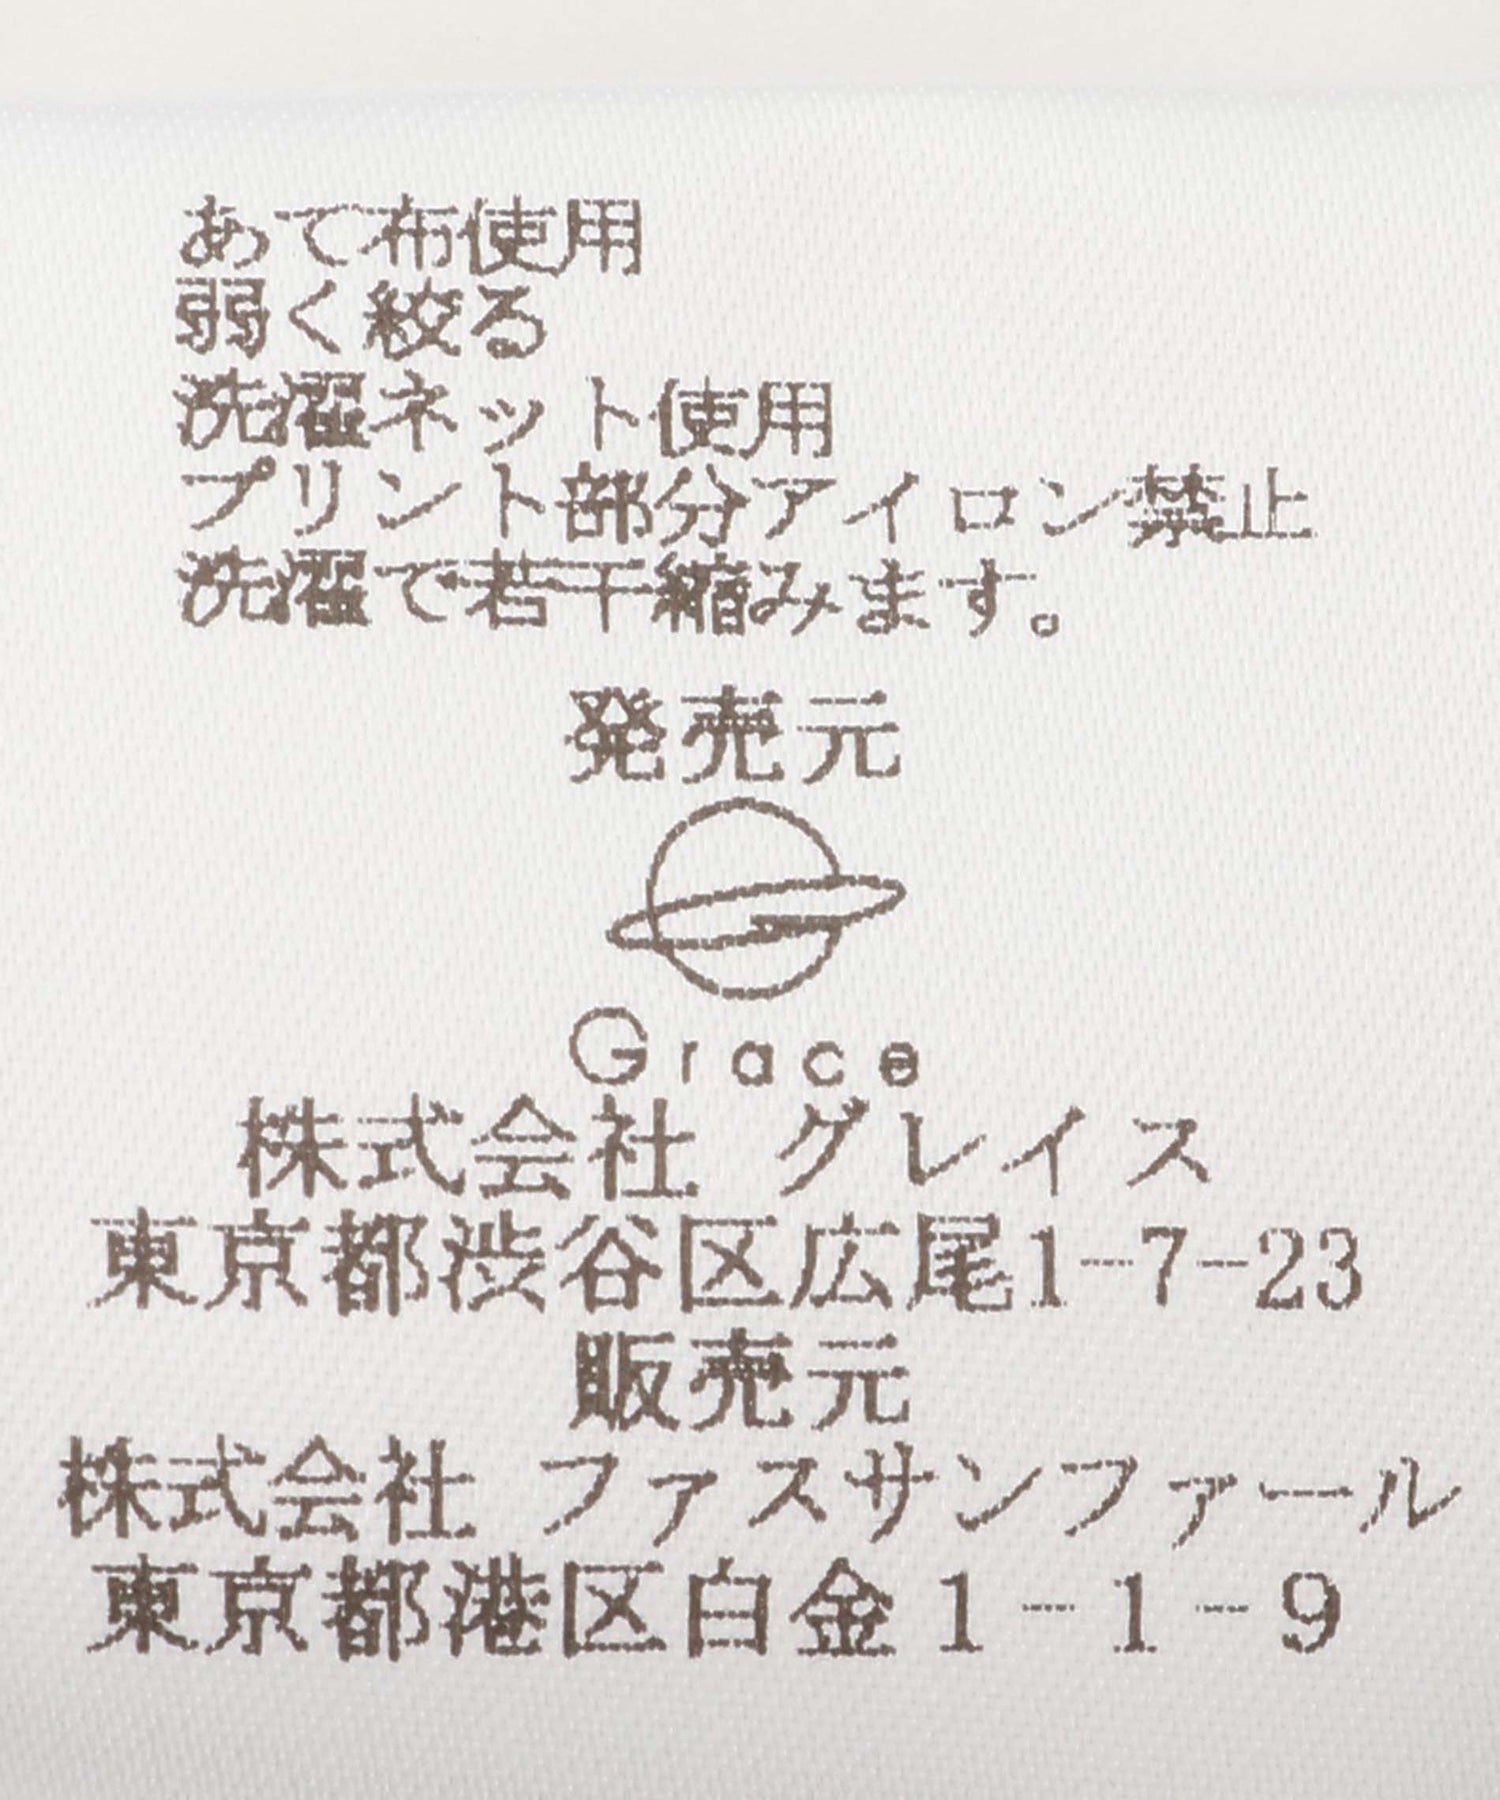 あて布使用
弱く絞る
洗濯ネット使用
プリント部分アイロン禁止
洗濯で若干縮みます。
発売元
Grace
株式会社 グレイス
東京都渋谷区広尾1-7-23
販売元
株式会社 ファスサンファール
東京都港区白金1-1-9